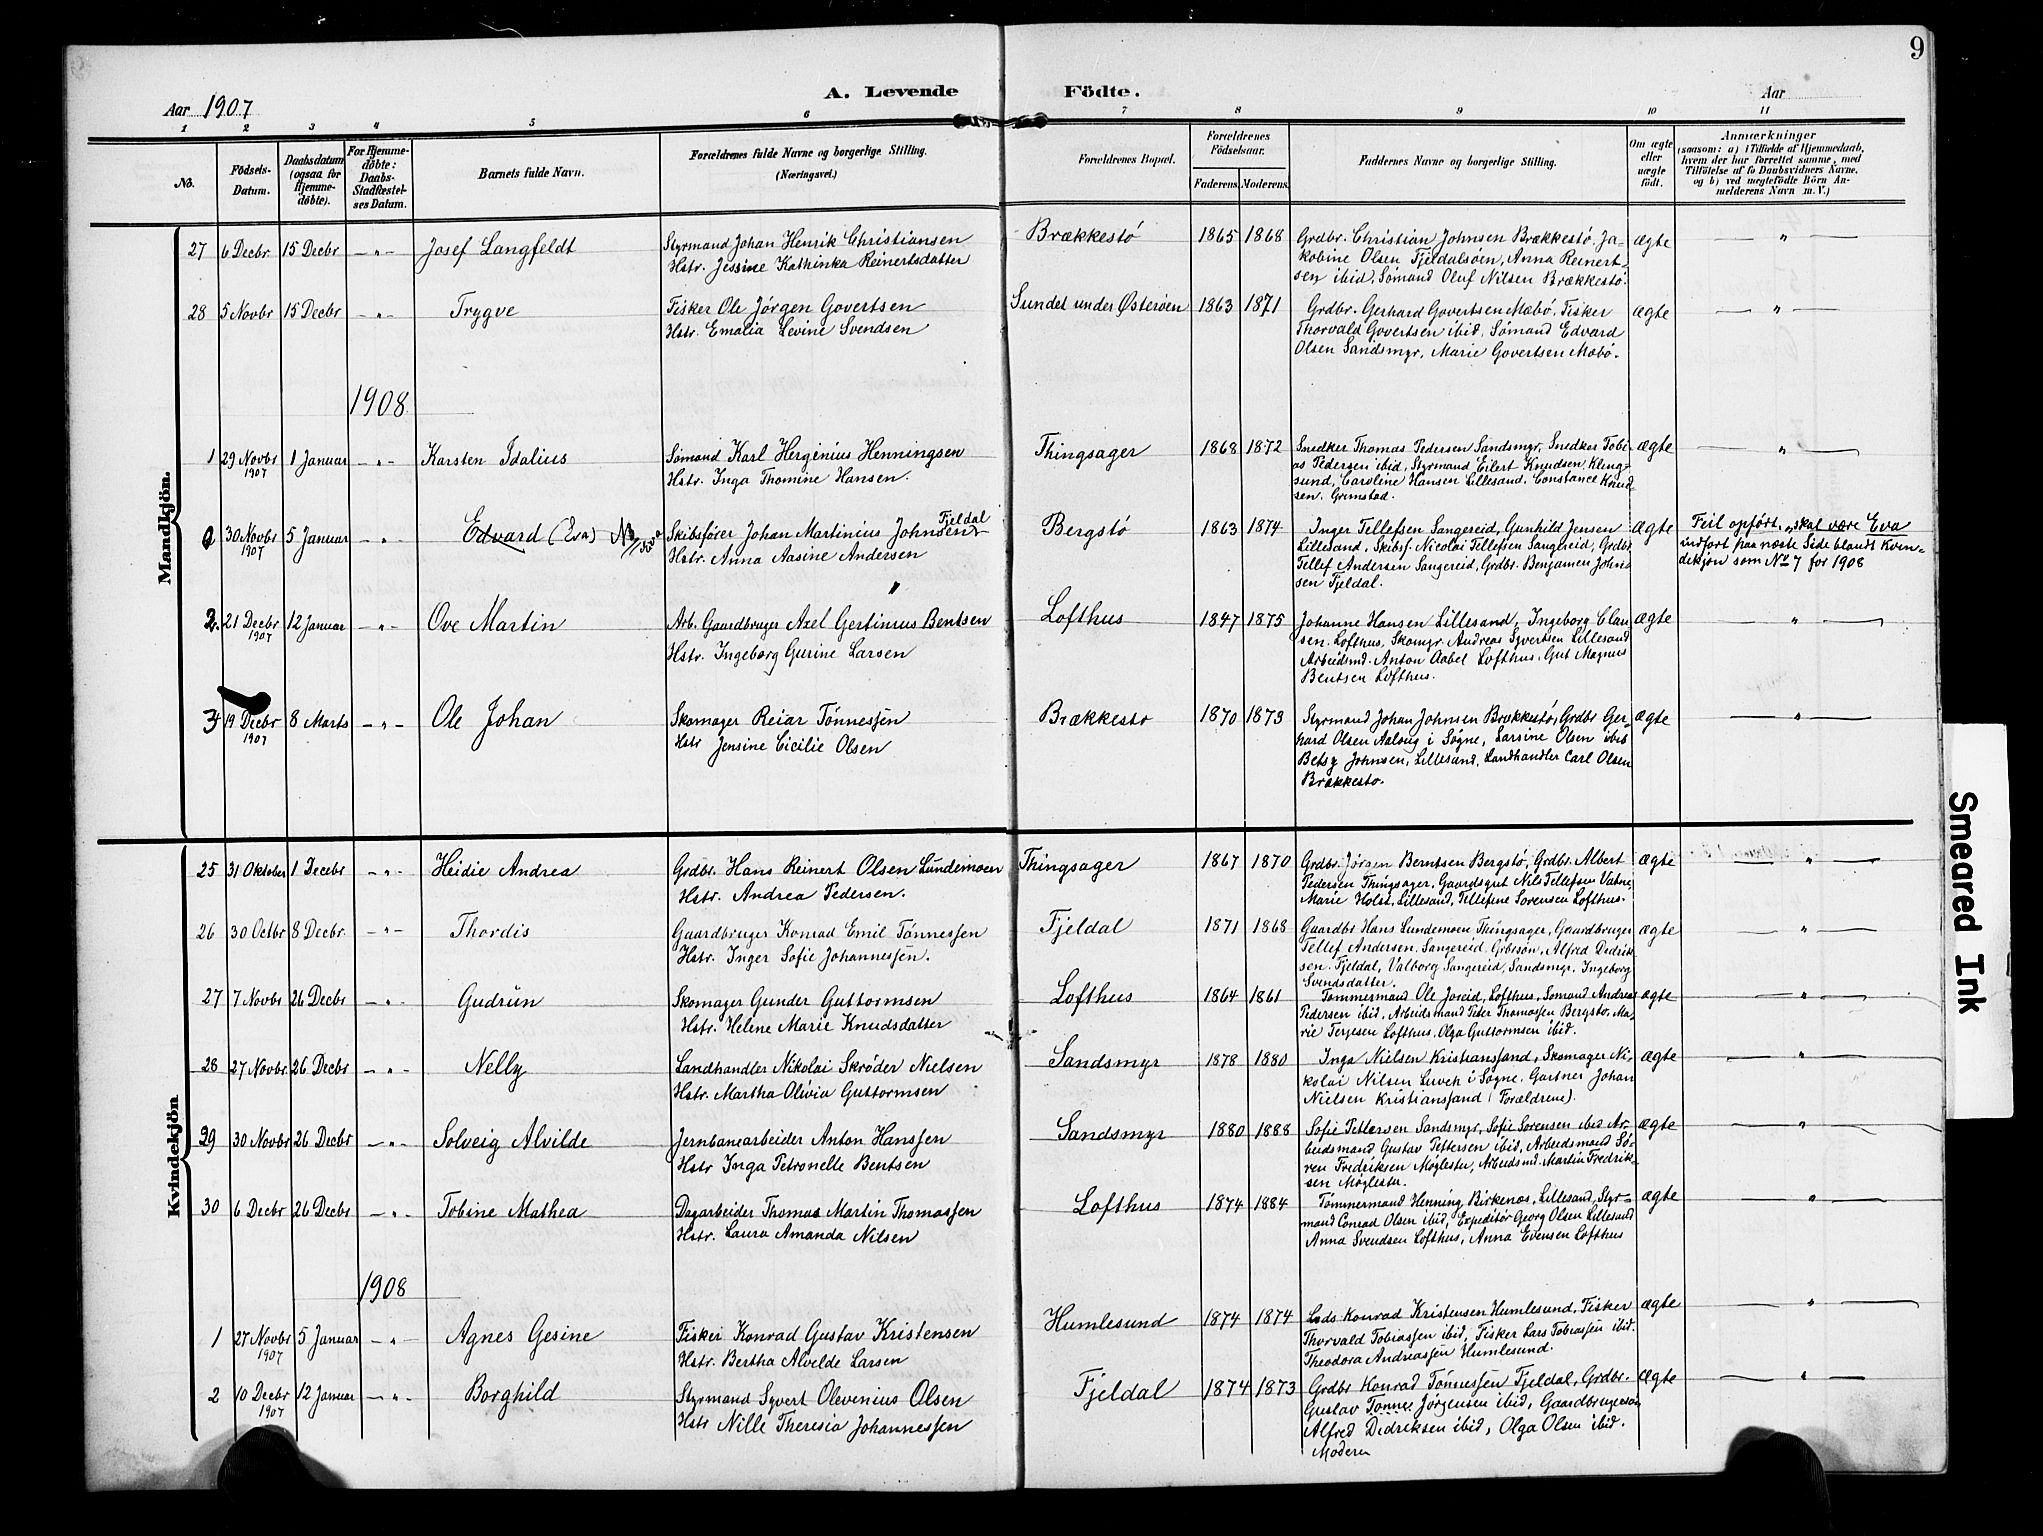 9
Aar 1907
A. Levende
Födte.
Aar
1 2 3 4 5 6 7 8 9 10 11
No.
Födsels-
Datum.
Daabsdatum
(ogsaa for
Hjemme-
døbte).
For Hjemme-
døbte:
Daabs-
Stadfæstel-
ses Datum.
Barnets fulde Navn.
Forældrenes fulde Navne og borgerlige Stilling.
(Næringsvei.)
Forældrenes Bopæl.
Forældrenes
Födselsaar.
Faderens. Moderens.
Faddernes Navne og borgerlige Stilling.
Om ægte
eller
uægte
født.
Anmærkninger
(saasom: a) i Tilfælde af Hjemmedaab,
hvem der har forrettet samme, med
Tilføielse af to Daabsvidners Navne,
og b) ved uægtefødte Börn An-
melderens Navn m. V.)
Mandkjön.
27 6 Decbr 15 Decbr — „ — Josef Langfeldt
Styrmand Johan Henrik Christiansen
Hstr. Jessine Kathinka Reinertsdatter
Brækkestö 1865 1868
Grdbr. Christian Johnsen Brækkestö, Ja-
kobine Olsen Fjeldalsöen, Anna Reinert-
sen ibid, Sömand Oluf Nilsen Brækkestö.
ægte — „ —
28 5 Novbr 15 Decbr — „ — Trygve
Fisker Ole Jörgen Govertsen
Hstr. Emalia Levine Svendsen
Sundet under Østeröen 1863 1871
Grdbr. Gerhard Govertsen Mæbö, Fisker
Thorvald Govertsen ibid, Sömand Edvard
Olsen Sandsmyr, Marie Govertsen Mæbö.
ægte — „ —
1908
1 29 Novbr 1907 1 Januar — „ — Karsten Idalius
Sömand Karl Herginius Henningsen
Hstr. Inga Thomine Hansen.
Thingsager 1868 1872
Snedker Thomas Pedersen Sandsmyr, Snedker Tobi-
as Pedersen ibid, Styrmand Eilert Knudsen Kleng-
sund, Caroline Hansen Lillesand. Constance Knud-
sen. Grimstad.
ægte — „ —
30 Novbr 1907 5 Januar — „ — Edvard (Eva)
Skibsförer Johan Martinius Johnsen Fjeldal
Hstr. Anna Aasine Andersen
Bergstö 1863 1874
Inger Tellefsen Sangereid, Gunhild Jensen
Lillesand, Skibsf. Nicolai Tellefsen Sangereid, Grdbr
Tellef Andersen Sangereid, Grdbr. Benjamin John-
sen Fjeldal.
ægte
Feil opfört, skal være Eva
indfört paa næste Side blandt Kvin-
dekjön som No 7 for 1908
2. 21 Decbr 1907 12 Januar — „ — Ove Martin
Arb. Gaardbruger Axel Gertinius Bentsen
Hstr. Ingeborg Gurine Larsen
Lofthus 1847 1875
Johanne Hansen Lillesand, Ingeborg Clau-
sen. Lofthus, Skomgr. Andreas Syvertsen Lillesand
Arbeidsmd. Anton Aabel Lofthus. Gut Magnus
Bentsen Lofthus.
ægte — „ —
3 19 Decbr 1907 8 Marts — „ — Ole Johan
Skomager Reiar Tönnessen
Hstr Jensine Cicilie Olsen
Brækkestö 1870 1873
Styrmand Johan Johnsen Brækkestö, Grdbr Ger-
hard Olsen Aaloug i Søgne, Larsine Olsen ibid
Betsy Johnsen, Lillesand, Landhandler Carl Olsen
Brækkestö.
ægte — „ —
Kvindekjön
25 31 Oktober 1 Decbr — „ — Heidie Andrea
Grdbr. Hans Reinert Olsen Lundemoen
Hstr. Andrea Pedersen.
Thingsager 1867 1870
Grdbr. Jörgen Berntsen Bergstö, Grdbr. Albert
Pedersen Thingsager, Gaardsgut Nils Tellefsen Vatne
Marie Holst, Lillesand, Tellefine Sorensen Lofthus.
ægte — „ —
26 30 Octbr 8 Decbr. — „ — Thordis
Gaardbruger Konrad Emil Tönnessen
Hstr. Inger Sofie Johannessen.
Fjeldal 1871 1868
Gaardbr Hans Lundemoen Thingsager, Gaardbruger
Tellef Andersen. Sangereid, Grbrsön, Alfred Dedrik-
sen. Fjeldal, Valborg Sangereid, Sandsmyr. Ingeborg
Svendsdatter.
ægte — „ —
27 7 Novbr 26 Decbr — „ — Gudrün
Skomager Gunder Guttormsen
Hstr. Helene Marie Knudsdatter
Lofthus 1864 1861
Tömmermand Ole Joreid, Lofthus, Sömand Andreas
Pedersen ibid, Arbeidsmand Peter Thomassen Bergstö, Ma-
rie Terjesen Lofthus. Olga Guttormsen ibid.
ægte — „ —
28 27 Novbr. 26 Decbr — „ — Nelly
Landhandler Nikolai Skröder Nielsen
Hstr. Martha Olivia Guttormsen
Sandsmyr 1878 1880
Inga Nielsen Kristianssand, Skomager Ni-
kolai Nilsen i Søgne. Gartner Johan
Nielsen Kristianssand (Forældrene).
ægte — „ —
29 30 Novbr 26 Decbr — „ — Solveig Alvilde
Jernbanearbeider Anton Hanssen
Hstr Inga Petronelle Bentsen
Sandsmyr 1880 1888
Sofie Pettersen Sandsmyr, Sofie Sorensen ibid Ar-
beidsmand Gustav Pettersen ibid, Arbeidsmand Sö-
ren Fredriksen Möglestu, Arbeidsmd. Martin Fredrik-
sen Möglestu.
ægte — „ —
30 6 Decbr 26 Decbr — „ — Tobine Mathea
Dagarbeider Thomas Martin Thomassen
Hstr. Laura Amanda Nilsen
Lofthus 1874 1884
Tömmermand Henning Birkenes, Lillesand, Styr-
mand Conrad Olsen ibid, Expeditör Georg Olsen Lillesand
Anna Svendsen Lofthus, Anna Evensen Lofthus
ægte — „ —
1908
1 27 Novbr 1907 5 Januar — „ — Agnes Gesine
Fisker Konrad Gustav Kristensen
Hstr. Bertha Alvilde Larsen
Humlesund 1874 1874
Lods Konrad Kristensen Humlesund, Fisker
Thorvald Tobiassen ibid, Fisker Lars Tobiassen ibid.
Theodora Andreassen Humlesund.
ægte — „ —
2 10 Decbr 1907 12 Januar — „ — Borghild
Styrmand Syvert Olevenius Olsen
Hstr Nille Theresia Johannessen
Fjeldal 1874 1873
Grdbr Konrad Tönnessen Fjeldal, Grdbr.
Gustav Tönnes Jörgensen ibid, Gaardbrugersön
Alfred Dedriksen ibid, Olga Olsen ibid.
Moderen
ægte — „ —
Smeared Ink